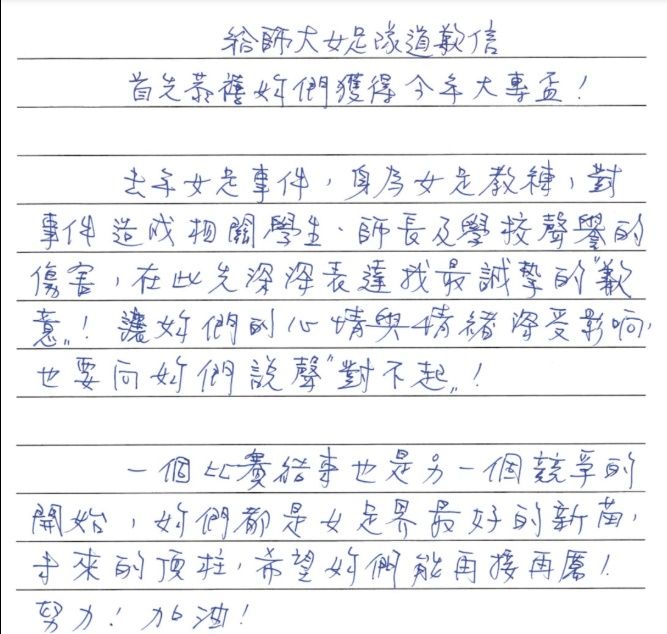 給師大女足隊道歉信
首先恭禧妳們獲得今年大專盃！
去年女足事件，身為女足教練，對
事件造成相關學生、師長及學校聲譽的
傷害，在此先深深表達我最誠摯的"歉
意"！讓妳們的心情與情緒深受影响，
也要向妳們說聲"對不起"！
一個比賽結束也是另一個競爭的
開始，妳們都是女足界最好的新苗，
未來的頂柱，希望妳們能再接再厲！
努力！加油！